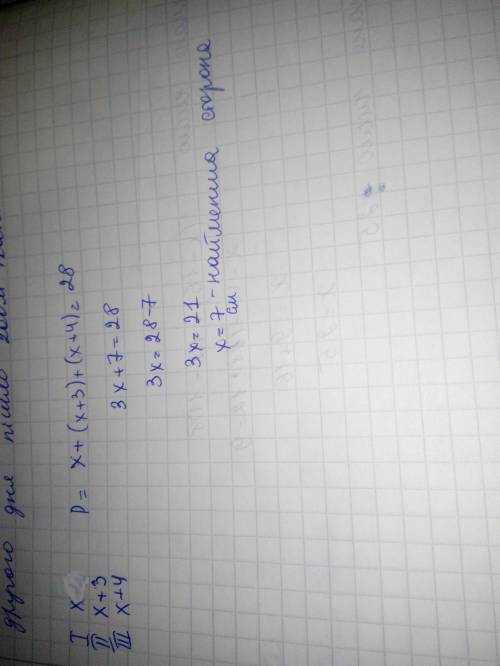 другого дня пішло
I x
II x+3
III x+4
P = x+(x+3)+(x+4)=28
3x+7=28
3x=28-7
3x=21
x=7 - найменша сторона
см